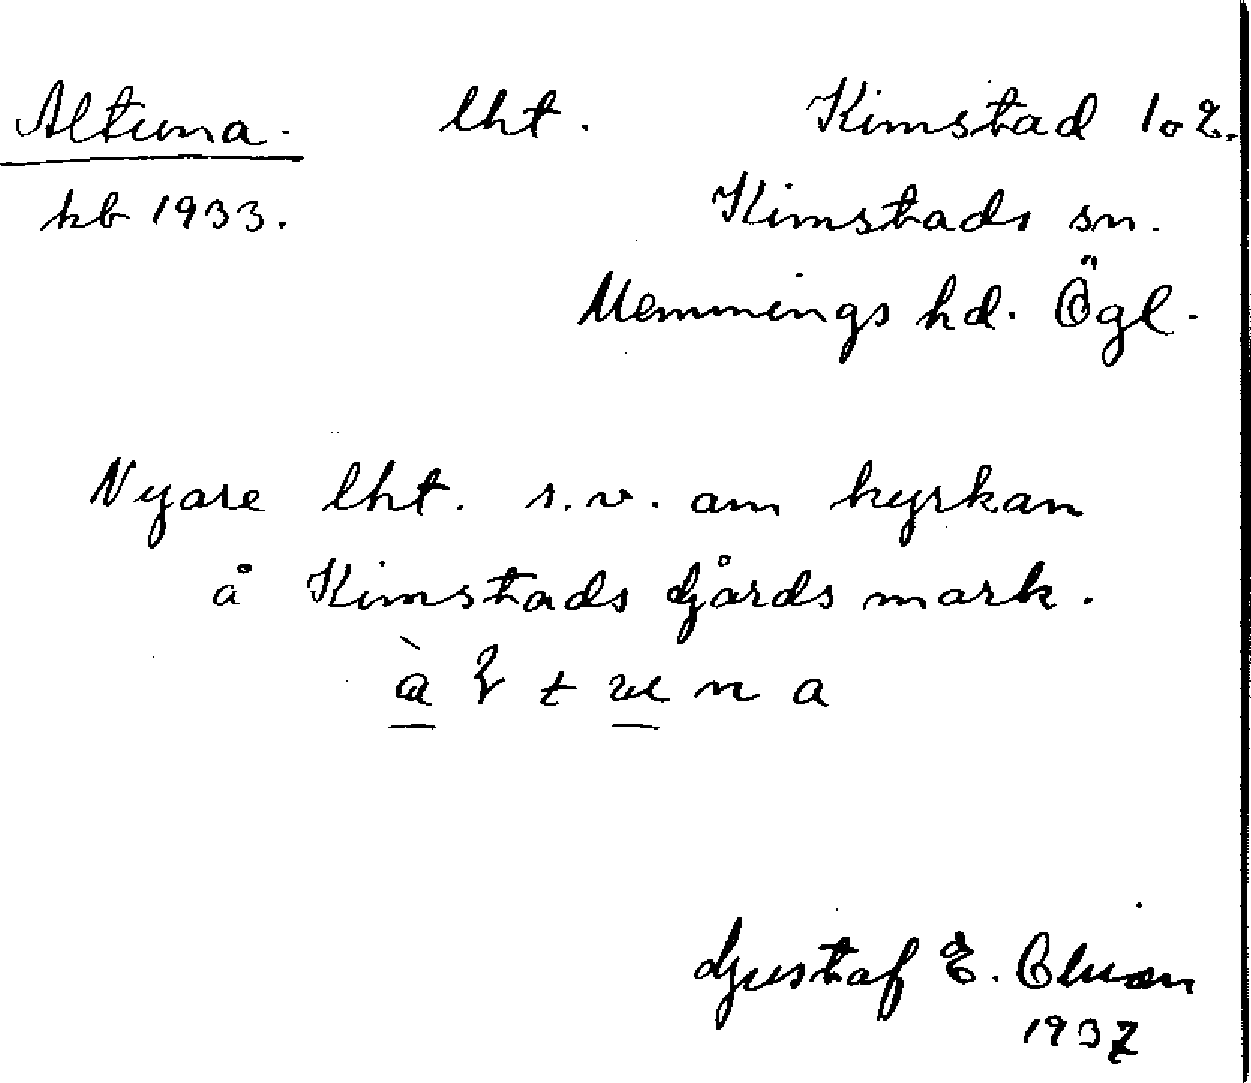 Altuna. lht. Kimstad 1 o 2.
kb 1933. Kimstads sn.
Memmings hd. Ögl.
Nyare lht. s.v. om kyrkan
å Kimstads gårds mark.
Gustaf E.
1937